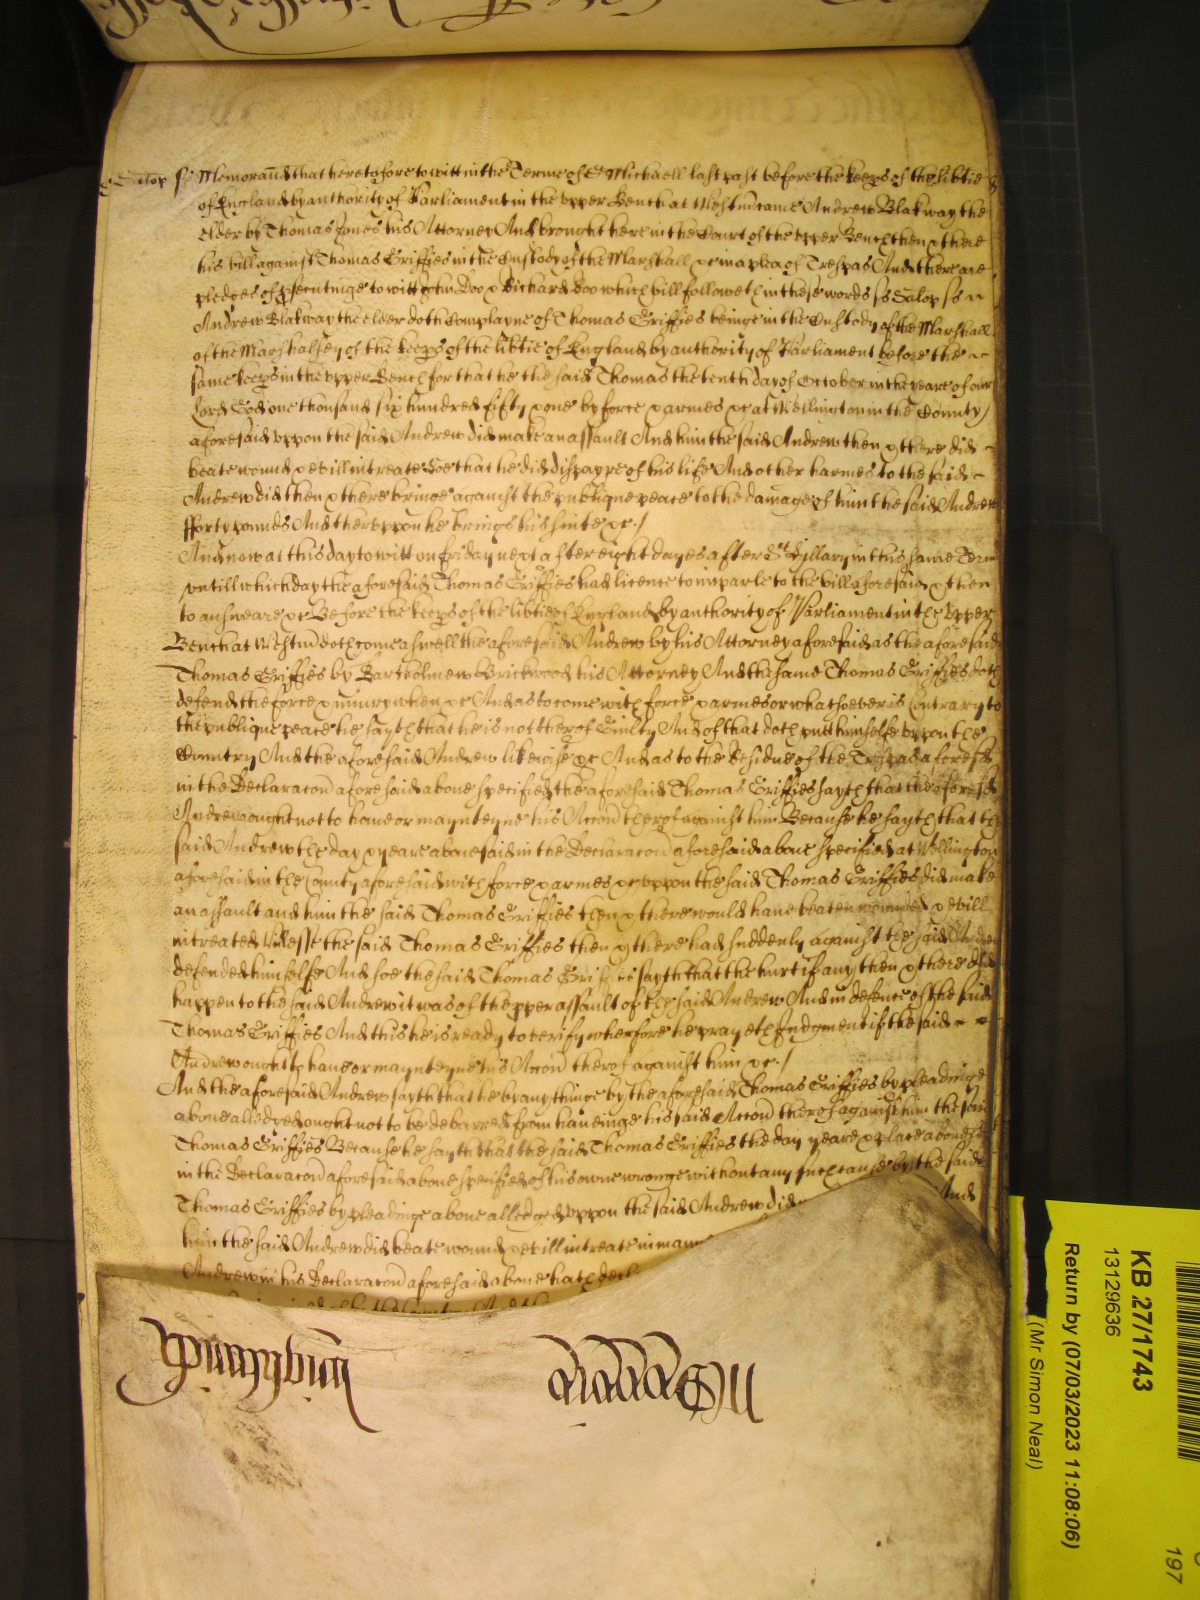 Salop ss Memorand that heretofore to witt in the Terme of St Michaell last past before the keeps of the libtie
of England by authority of Parliament in the upper Bench at Westm came Andrew Blakway the
elder by Thomas Jones his Attorney And brought here in the Court of the upper Bench then & there
his bill against Thomas Griffies in the Custody of the Marshall &c in a plea of Trespas And there are
pledges of psecutinge to witt John Doo & Richard Roo which bill followeth in these words ss Salop ss
Andrew Blakway the elder doth Complayne of Thomas Griffies beinge in the Custody of the Marshall
of the Marshalsey of the keeps of the libtie of England by authority of Parliament before the
same keeps in the upper Bench for that he the said Thomas the tenth day of October in the yeare of our
Lord God one thousand six hundred fifty & one by force & armes &c at Wellington in the County
aforesaid uppon the said Andrew did make an assault And him the said Andrew then & there did
beate wound & evill intreate Soe that he did dispayre of his life And other harmes to the said
Andrew did then & there bringe against the publique peace to the damage of him the said Andrew
fforty pounds And thereuppon he brings his suite &c /
And now at this day to witt on friday next after eight dayes after St Hillary in this same Terme
untill which day the aforesaid Thomas Griffies had licence to imparle to the bill aforesaid & then
to answeare &c Before the keeps of the libtie of England by authority of Parliament in the upper
Bench at Westm doth come aswell the aforesaid Andrew by his Attorney aforesaid as the aforesaid
Thomas Griffies by Bartholmew Brickwood his Attorney And the same Thomas Griffies doth
defend the force & iniury when &c And as to come with force & armes or whatsoever is Contrary to
the publique peace he sayth that he is not therof Guilty And of that doth putt himselfe uppon the
Country And the aforesaid Andrew likewise &c And as to the Residue of the Trespas aforesd
in the Declaracon aforesaid above specified the aforesaid Thomas Griffies sayth that the aforesd
Andrew ought not to have or maynteyne his Accon therof against him Because he sayth that the
said Andrew the day & yeare abovesaid in the Declaracon aforesaid above specified at Wellington
aforesaid in the County aforesaid with force & armes &c uppon the said Thomas Griffies did make
an assault and him the said Thomas Griffies then & there would have beaten wounded & evill
intreated Unlesse the said Thomas Griffies then & there had suddenly against the said Andrew
defended himselfe And soe the said Thomas Griffies sayth that the hurt if any then & there did
happen to the said Andrew it was of the pper assault of the said Andrew And in defence of the said
Thomas Griffies And this he is ready to verify wherfore he prayeth Judgment if the said
Andrew ought to have or maynteyne his Accon therof against him &c /
And the aforesaid Andrew sayth that he by any thinge by the aforesaid Thomas Griffies by pleadinge
above alledged ought not to be debarred from haveinge his said Accon therof against him the said
Thomas Griffies Because he sayth that the said Thomas Griffies the day yeare & place abovesd
in the Declaracon aforesaid above specified of his owne wronge without any such cause by the said
Thomas Griffies by pleadinge above alledged uppon the said Andrew did And
him the said Andrew did beate wound & evill intreate in mann
Andrew in his Declaracon aforesaid above hath decl
KB 27/1743
13129636
Return by (07/03/2023 11:08:06)
(Mr Simon Neal)
197